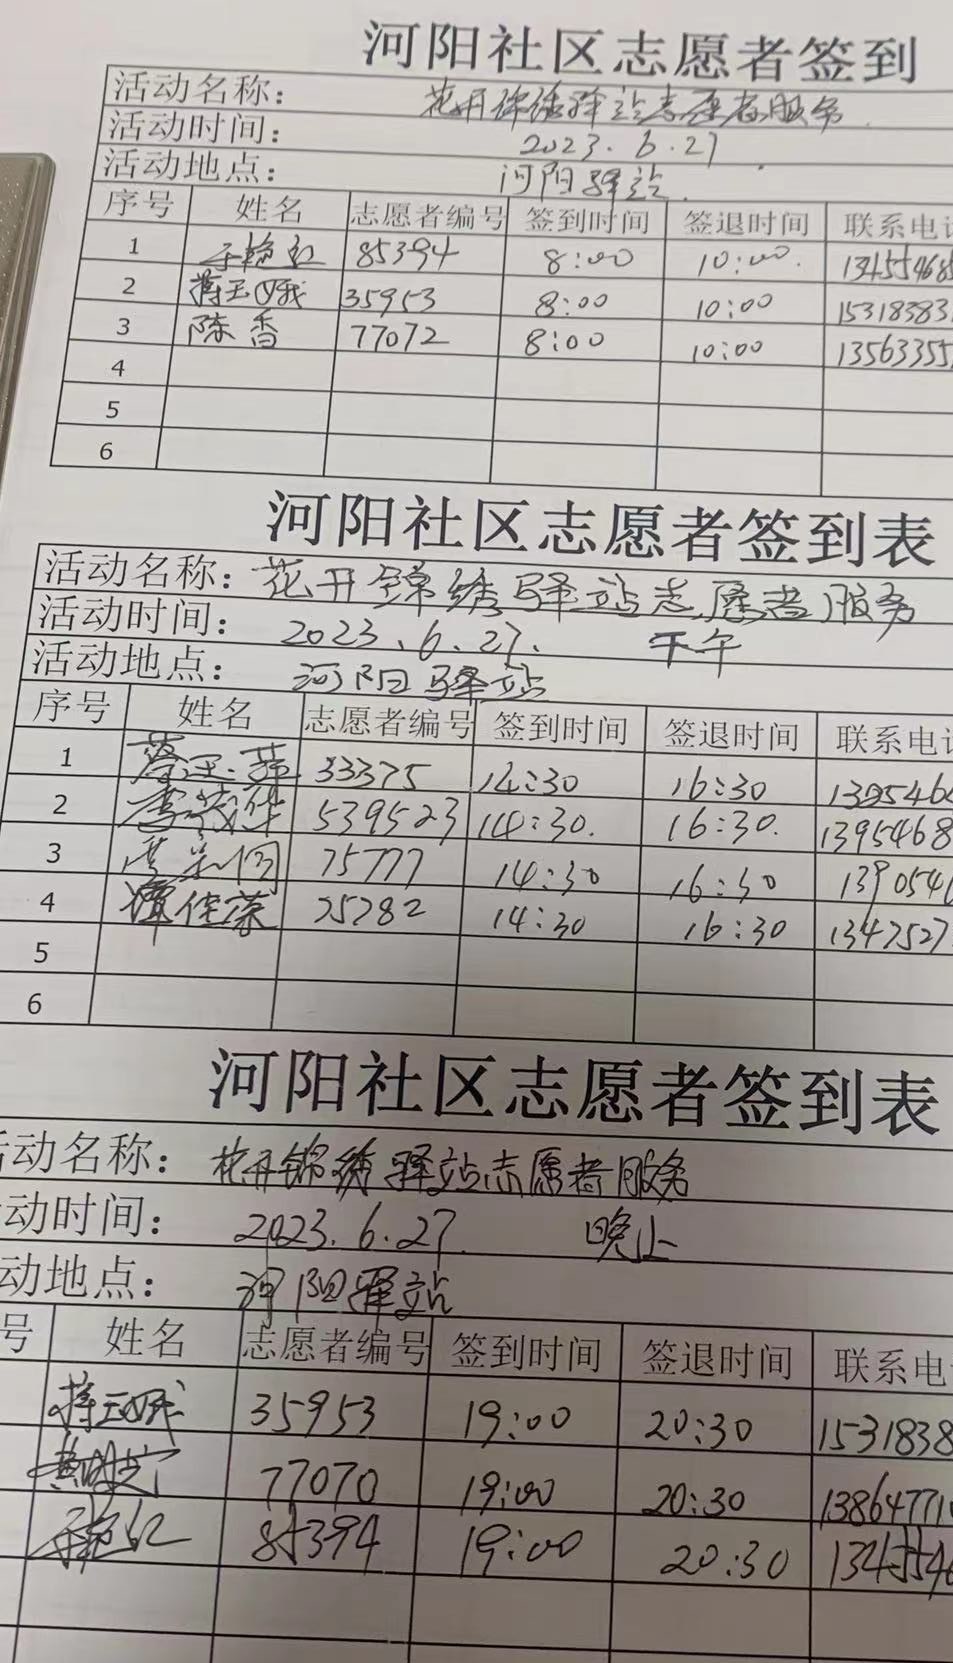 河阳社区志愿者签到
活动名称： 花开锦绣驿站志愿者服务
活动时间： 2023.6.27
活动地点： 河阳驿站
序号 姓名 志愿者编号 签到时间 签退时间 联系电
1 于艳红 85394 8:00 10:00. 134554685
2 35953 8:00 10:00 15318383
3 陈香 77072 8:00 10:00 13563355
4
5
6
河阳社区志愿者签到表
活动名称：花开锦绣驿站志愿者服务
活动时间： 2023.6.27. 下午
活动地点： 河阳驿站
序号 姓名 志愿者编号 签到时间 签退时间 联系电
1 33375 14:30 16:30 1395464
2 李茂华 539523 14:30. 16:30. 1395468
3 75777 14:30 16:30 1390546
4 谭佳荣 75782 14:30 16:30 1347527
5
6
河阳社区志愿者签到表
动名称： 花开锦绣驿站志愿者服务
动时间： 2023.6.27. 晚上
动地点： 河阳驿站
号 姓名 志愿者编号 签到时间 签退时间 联系电
35953 19:00 20:30 1531838
77070 19:00 20:30 13864771
于艳红 85394 19:00 20:30 1345546